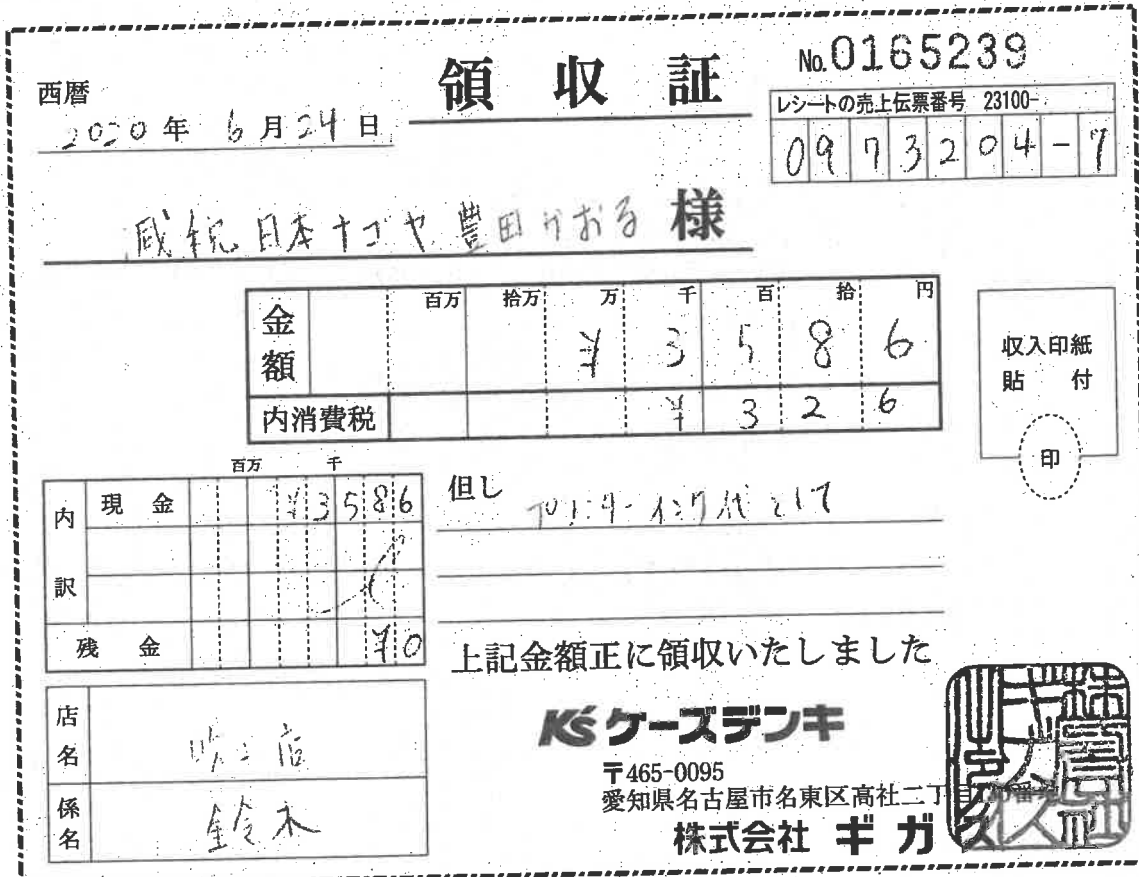 領収証
No.0165239
西暦
2020年 6月24日
レシートの売上伝票番号 23100-
0973204-7
減税日本ナゴヤ 豊田かおる 様
百万 拾万 万 千 百 拾 円
金額 ¥3586
内消費税 ¥326
収入印紙
貼 付
印
百万 千
内訳
現金 ¥3586
残金 ¥0
但し プリンターインク代として
上記金額正に領収いたしました
店名 店
係名 鈴木
K'sケーズデンキ
〒465-0095
愛知県名古屋市名東区高社二丁目
株式会社 ギガス